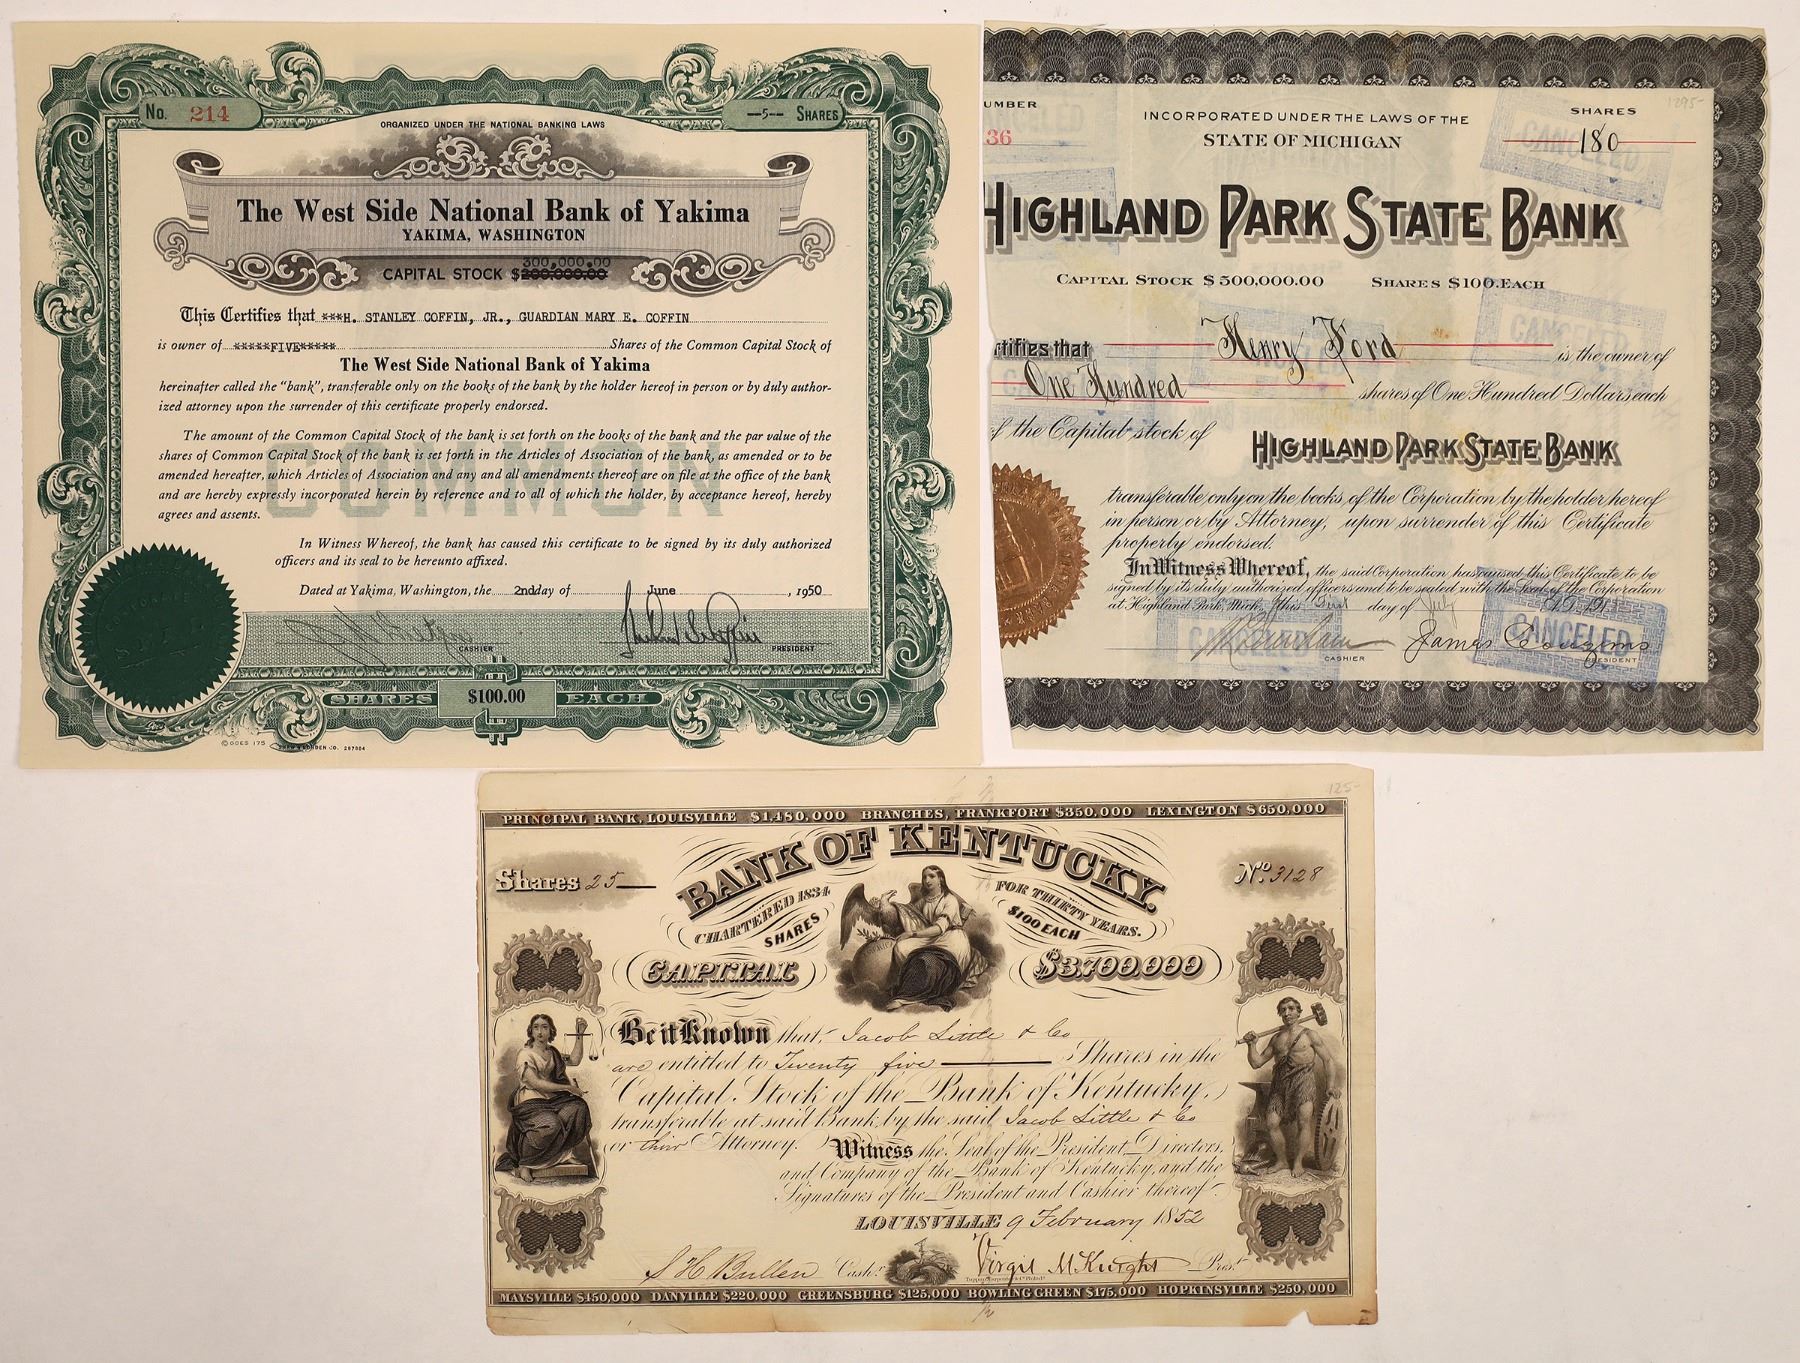 No. 214
—5— SHARES
ORGANIZED UNDER THE NATIONAL BANKING LAWS
The West Side National Bank of Yakima
YAKIMA, WASHINGTON
300,000.00
CAPITAL STOCK $200,000.00
This Certifies that ***H. STANLEY COFFIN, JR., GUARDIAN MARY E. COFFIN
is owner of *****FIVE***** Shares of the Common Capital Stock of
The West Side National Bank of Yakima
hereinafter called the "bank", transferable only on the books of the bank by the holder hereof in person or by duly author-
ized attorney upon the surrender of this certificate properly endorsed.
The amount of the Common Capital Stock of the bank is set forth on the books of the bank and the par value of the
shares of Common Capital Stock of the bank is set forth in the Articles of Association of the bank, as amended or to be
amended hereafter, which Articles of Association and any and all amendments thereof are on file at the office of the bank
and are hereby expressly incorporated herein by reference and to all of which the holder, by acceptance hereof, hereby
agrees and assents.
COMMON
In Witness Whereof, the bank has caused this certificate to be signed by its duly authorized
officers and its seal to be hereunto affixed.
Dated at Yakima, Washington, the 2nd day of June, 1950
CASHIER
PRESIDENT
SHARES $100.00 EACH
© GOES 175
UMBER
36
INCORPORATED UNDER THE LAWS OF THE
STATE OF MICHIGAN
SHARES
180
1295-
CANCELED
HIGHLAND PARK STATE BANK
CAPITAL STOCK $500,000.00 SHARES $100. EACH
CANCELED
rtifies that Henry Ford is the owner of
One Hundred shares of One Hundred Dollars each
f the Capital stock of HIGHLAND PARK STATE BANK
transferable only on the books of the Corporation by the holder hereof
in person or by Attorney, upon surrender of this Certificate
properly endorsed.
In Witness Whereof, the said Corporation has caused this Certificate to be
signed by its duly authorized officers and to be sealed with the Seal of the Corporation
at Highland Park, Mich. this First day of July
CANCELED
CANCELED
James Couzens
CASHIER
PRESIDENT
125-
PRINCIPAL BANK, LOUISVILLE $1,480,000 BRANCHES, FRANKFORT $350,000 LEXINGTON $650,000
BANK OF KENTUCKY.
Shares 25
No. 3128
CHARTERED 1834 FOR THIRTY YEARS.
SHARES $100 EACH
CAPITAL $3,700,000
AMERICA
Be it Known that Jacob Little & Co
are entitled to Twenty five Shares in the
Capital Stock of the Bank of Kentucky,
transferable at said Bank by the said Jacob Little & Co
or their Attorney. Witness the Seal of the President, Directors,
and Company of the Bank of Kentucky, and the
Signatures of the President and Cashier thereof.
LOUISVILLE 9 February 1852
S H Bullen Cashr. Virgil McKnight Prest.
MAYSVILLE $450,000 DANVILLE $220.000 GREENSBURG $125,000 BOWLING GREEN $175,000 HOPKINSVILLE $250,000